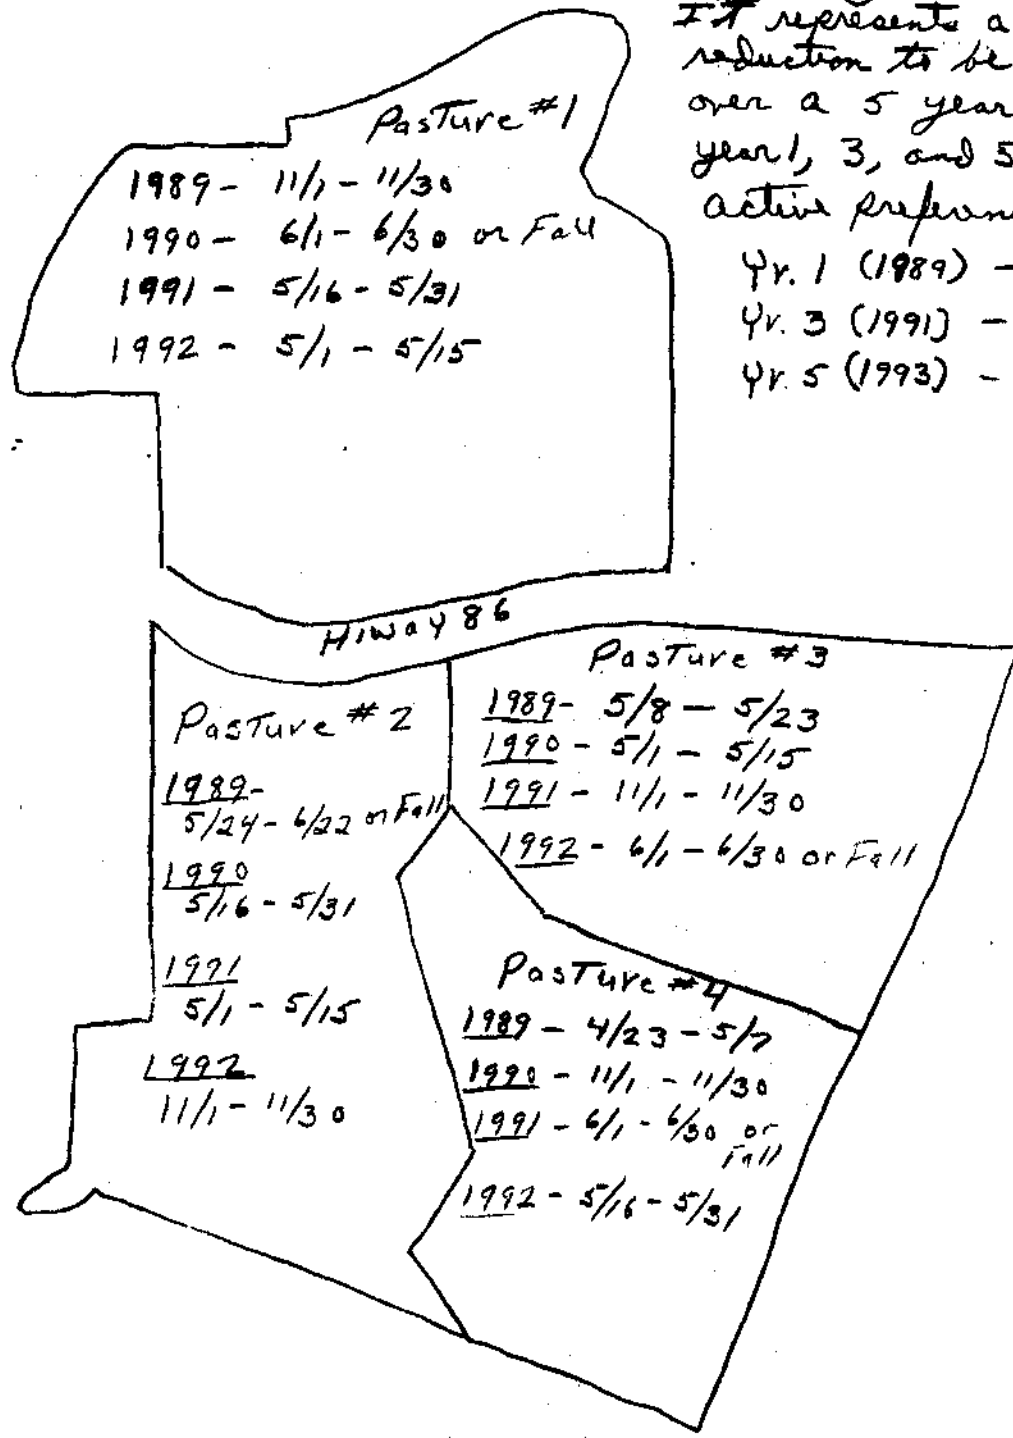 It represents a
reduction to be
over a 5 year
year 1, 3, and 5
active
Yr. 1 (1989) -
Yr. 3 (1991) -
Yr. 5 (1993) -
Pasture #1
1989 - 11/1 - 11/30
1990 - 6/1 - 6/30 or Fall
1991 - 5/16 - 5/31
1992 - 5/1 - 5/15
Hiway 86
Pasture #2
1989 -
5/24 - 6/22 or Fall
1990
5/16 - 5/31
1991
5/1 - 5/15
1992
11/1 - 11/30
Pasture #3
1989 - 5/8 - 5/23
1990 - 5/1 - 5/15
1991 - 11/1 - 11/30
1992 - 6/1 - 6/30 or Fall
Pasture #4
1989 - 4/23 - 5/7
1990 - 11/1 - 11/30
1991 - 6/1 - 6/30 or
Fall
1992 - 5/16 - 5/31